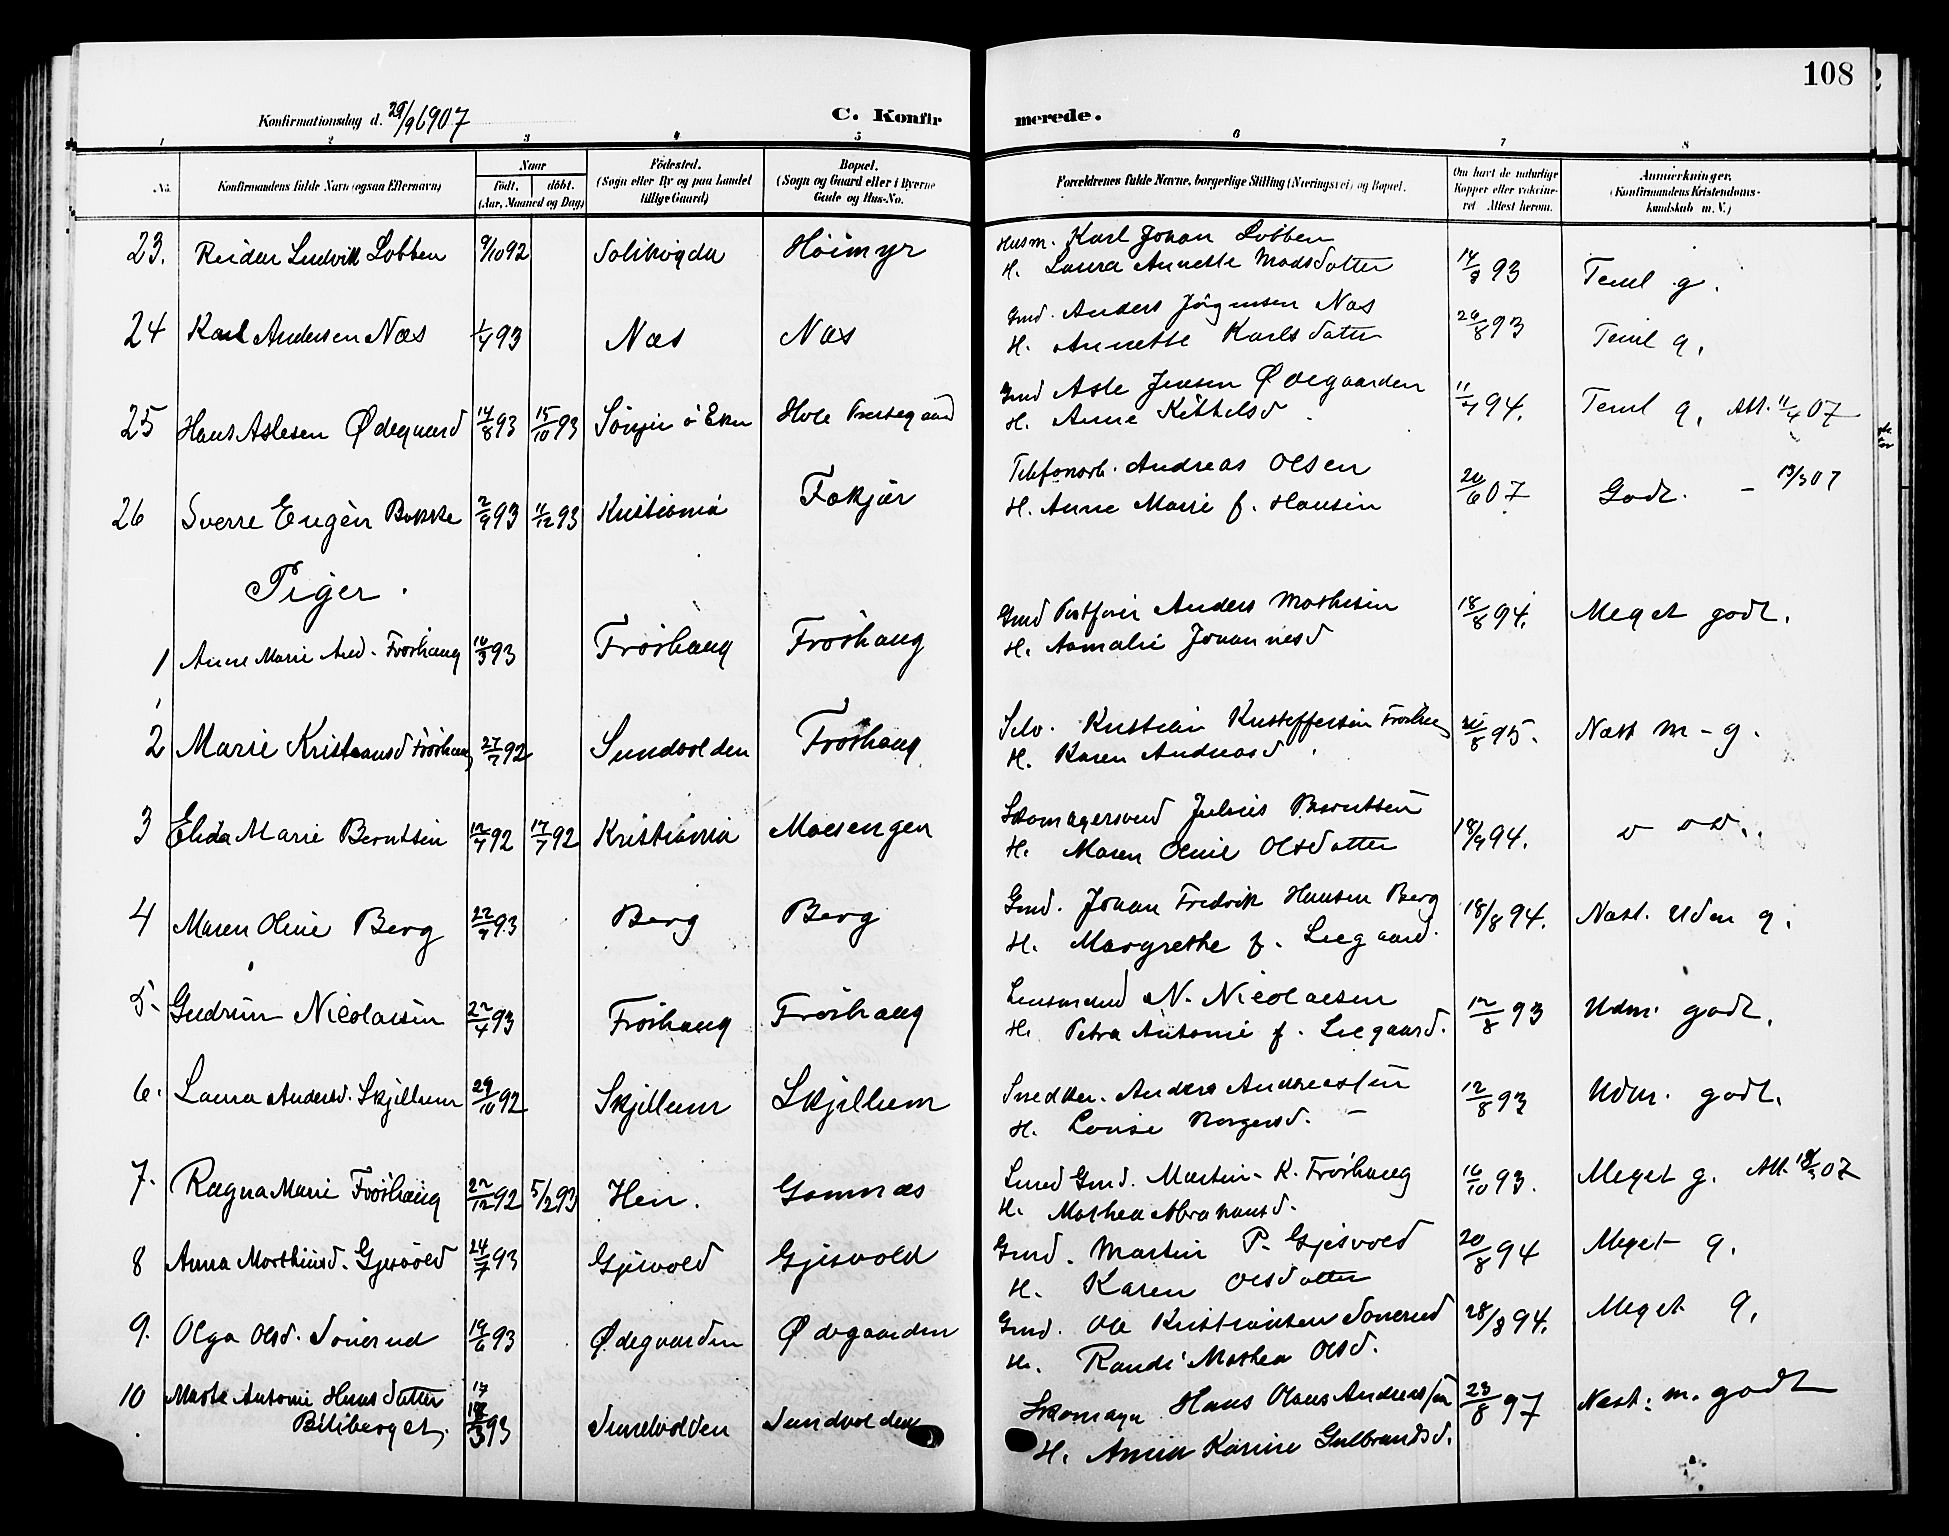 108
Konfirmationsdag d. 29/9 1907
C. Konfirmerede.
1 2 3 4 5 6 7 8
No. Konfirmandens fulde Navn (ogsaa Efternavn) Naar födt. döbt. (Aar, Maaned og Dag) Födested. (Sogn eller By og paa Landet tillige Gaard) Bopæl. (Sogn og Gaard eller i Byerne Gade og Hus-No. Forældrenes fulde Navne, borgerlige Stilling (Næringsvei) og Bopæl. Om havt de naturlige Kopper eller vaccineret. Attest herom. Anmærkninger. (Konfirmandens Kristendomskundskab m. V.)
23. Reidar Ludvik Lobben 9/10 92 Solihøgda Høimyr Husm. Karl Johan Lobben 93 Teml g.
H. Laura Annette Madsdatter
24 Karl Andersen Næs 1/4 93 Næs Næs Gmd. Anders Jörgensen Næs 26/8 93 Teml g.
H. Annette Karlsdatter
25 Hans Aslesen Ødegaard 14/8 93 15/10 93 Hole Prestegaard Gmd Asle Jensen Ødegaarden 11/7 94. Teml g. Att. 11/4 07
H. Anne Kittelsd.
26 Sverre Eugèn Bakke 2/9 93 11/12 93 Kristiania Fakjær Telefonarb. Andreas Olsen 20/6 07 Godt. – 13/3 07
H. Anne Marie f. Hansen
Piger.
1 Anne Marie And. Frøshaug 16/3 93 Frøshaug Frøshaug Gmd Postfører Anders Mathisen 18/8 94. Meget godt.
H. Aamalie Johannesd
2 Marie Kristiansd Frøshaug 27/7 92 Sundvolden Frøshaug Selv. Kristian Kristoffersen Frøshaug 95. Næst m – g.
H. Karen Andreasd
3 Elida Marie Berntsen 12/7 92 17/7 92 Kristiania Moesengen Skomagersvend Julius Berntsen 18/9 94.
H. Maren Oline Olsdatter
4 Maren Oline Berg 93 Berg Berg Gmd. Johan Fredrik Hansen Berg 18/8 94. Næst. Udm g.
H. Margrethe f. Leegaard.
5. Gudrun Nicolaisen 22/4 93 Frøshaug Frøshaug Lensmand N. Nicolaisen 12/8 93 Udm. godt.
H. Petra Antonie f. Leegaard.
6. Laura Andersd. Skjellum 29/10 92 Skjellum Skjellum Snedker. Anders Andreassen 12/8 93 Udm. godt.
H. Louise Borgersd. –
7. Ragna Marie Frøshaug 22/12 92 5/2 93 Hen. Gomnæs Smed Gmd. Martin K. Frøshaug 16/10 93. Meget g. Att. 07
H. Mathea Abrahamsd.
8 Anna Marthinsd. Gjesvold 24/7 93 Gjesvold Gjesvold Gmd. Martin P. Gjesvold 20/8 94 Meget g.
H. Karen Olsdatter
9. Olga Olsd. Sonerud 19/6 93 Ødegaarden Ødegaarden Gmd. Ole Kristiansen Sonerud 28/8 94. Meget g.
H. Randi Mathea Olsd.
10 Marte Antonie Hansdatter 93 Sundvolden Sundvolden Skomager Hans Olaus Andreassen 23/8 97 Næst. m. godt
Biliberget. H. Anna Karine Gulbrandsd.